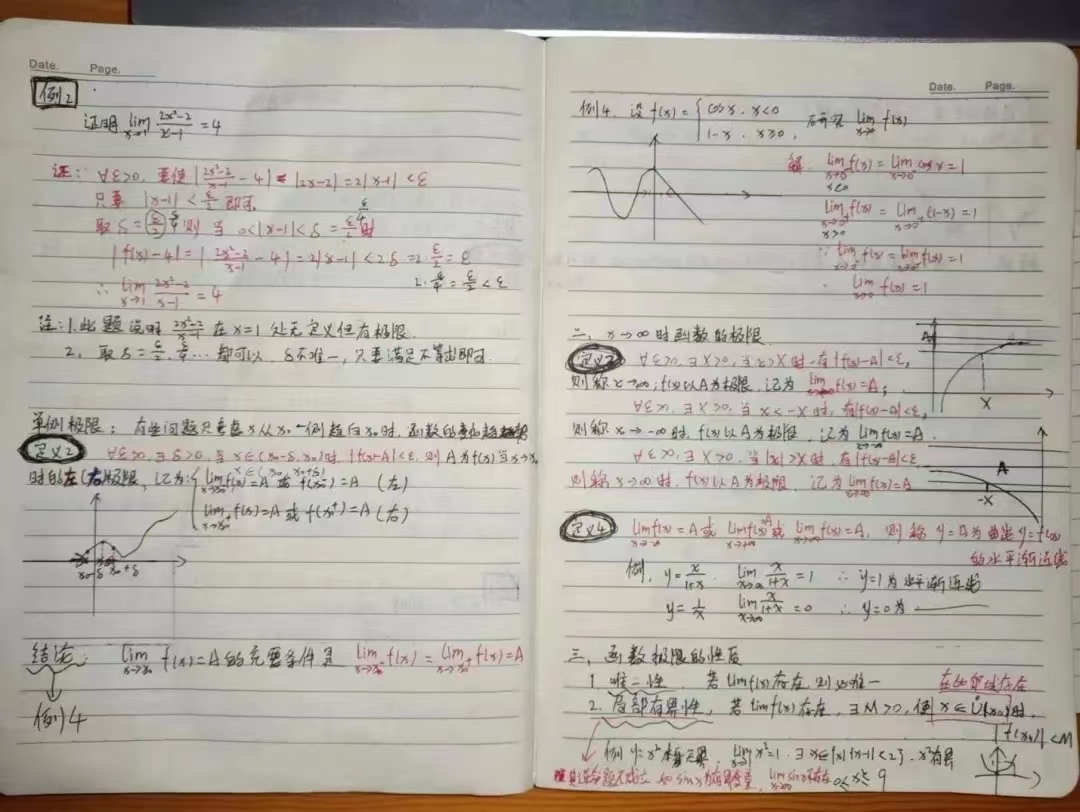 Date. Page.
例2
证明 lim x→1 (2x²-2)/(x-1) = 4
证: ∀ε>0, 要使 |(2x²-2)/(x-1) - 4| = |2x-2| = 2|x-1| < ε
只要 |x-1| < ε/2 即可
取 δ = ε/2 ε/4 则 当 0<|x-1|<δ = ε/2 时 ε/4
|f(x)-4| = |(2x²-2)/(x-1) - 4| = 2|x-1| < 2δ = 2·ε/2 = ε
2·ε/4 = ε/2 < ε
∴ lim x→1 (2x²-2)/(x-1) = 4
注: 1. 此题说明 (2x²-2)/(x-1) 在 x=1 处无定义但有极限.
2. 取 δ = ε/2, ε/4 … 都可以, δ不唯一, 只要满足不等式即可.
单侧极限: 在些问题只考虑 x 从 x₀ 一侧趋向 x₀ 时, 函数的变化趋势
定义2 ∀ε>0, ∃ δ>0, 当 x∈(x₀-δ, x₀) 时 |f(x)-A|<ε, 则 A 为 f(x) 当 x→x₀
x∈(x₀, x₀+δ)
时的左(右)极限, 记为: lim x→x₀⁻ f(x)=A 或 f(x₀⁻)=A (左)
lim x→x₀⁺ f(x)=A 或 f(x₀⁺)=A (右)
x₀-δ x₀ x₀+δ
结论: lim x→x₀ f(x)=A 的充要条件是 lim x→x₀⁻ f(x) = lim x→x₀⁺ f(x) = A
例4
Date. Page.
例4. 设 f(x) = { cos x, x<0
1-x, x≥0, 研究 lim x→0 f(x)
解: lim x→0⁻ f(x) = lim x→0⁻ cos x = 1
x<0
lim x→0⁺ f(x) = lim x→0⁺ (1-x) = 1
x>0
∵ lim x→0⁻ f(x) = lim x→0⁺ f(x) = 1
∴ lim x→0 f(x) = 1
二、x→∞ 时函数的极限
定义3 ∀ε>0, ∃X>0, 当 x>X 时, 有 |f(x)-A|<ε,
则称 x→+∞, f(x)以A为极限, 记为 lim x→+∞ f(x)=A;
∀ε>0, ∃X>0, 当 x<-X 时, 有|f(x)-A|<ε,
则称 x→-∞ 时, f(x)以A为极限, 记为 lim x→-∞ f(x)=A.
∀ε>0, ∃X>0, 当 |x|>X 时, 有|f(x)-A|<ε
则称 x→∞ 时, f(x)以A为极限, 记为 lim x→∞ f(x)=A
A X
A -X
定义4 lim x→-∞ f(x)=A 或 lim x→+∞ f(x)=A 或 lim x→∞ f(x)=A, 则称 y=A 为曲线 y=f(x)
的水平渐近线
例, y = x/(1+x), lim x→∞ x/(1+x) = 1 ∴ y=1 为水平渐近线
y = 1/x lim x→∞ x/(1+x) = 0 ∴ y=0 为 ——
三、函数极限的性质
1. 唯一性 若 lim f(x) 存在, 则必唯一
2. 局部有界性, 若 lim f(x) 存在, ∃M>0, 使 x∈Ů(x₀) 时,
|f(x)|<M
例 y=x² 无界, lim x→1 x²=1, ∃ x∈{x| |x-1|<2}, x²有界
0≤x²≤9
如 sin x 为有界 lim x→∞ sin x 不存在